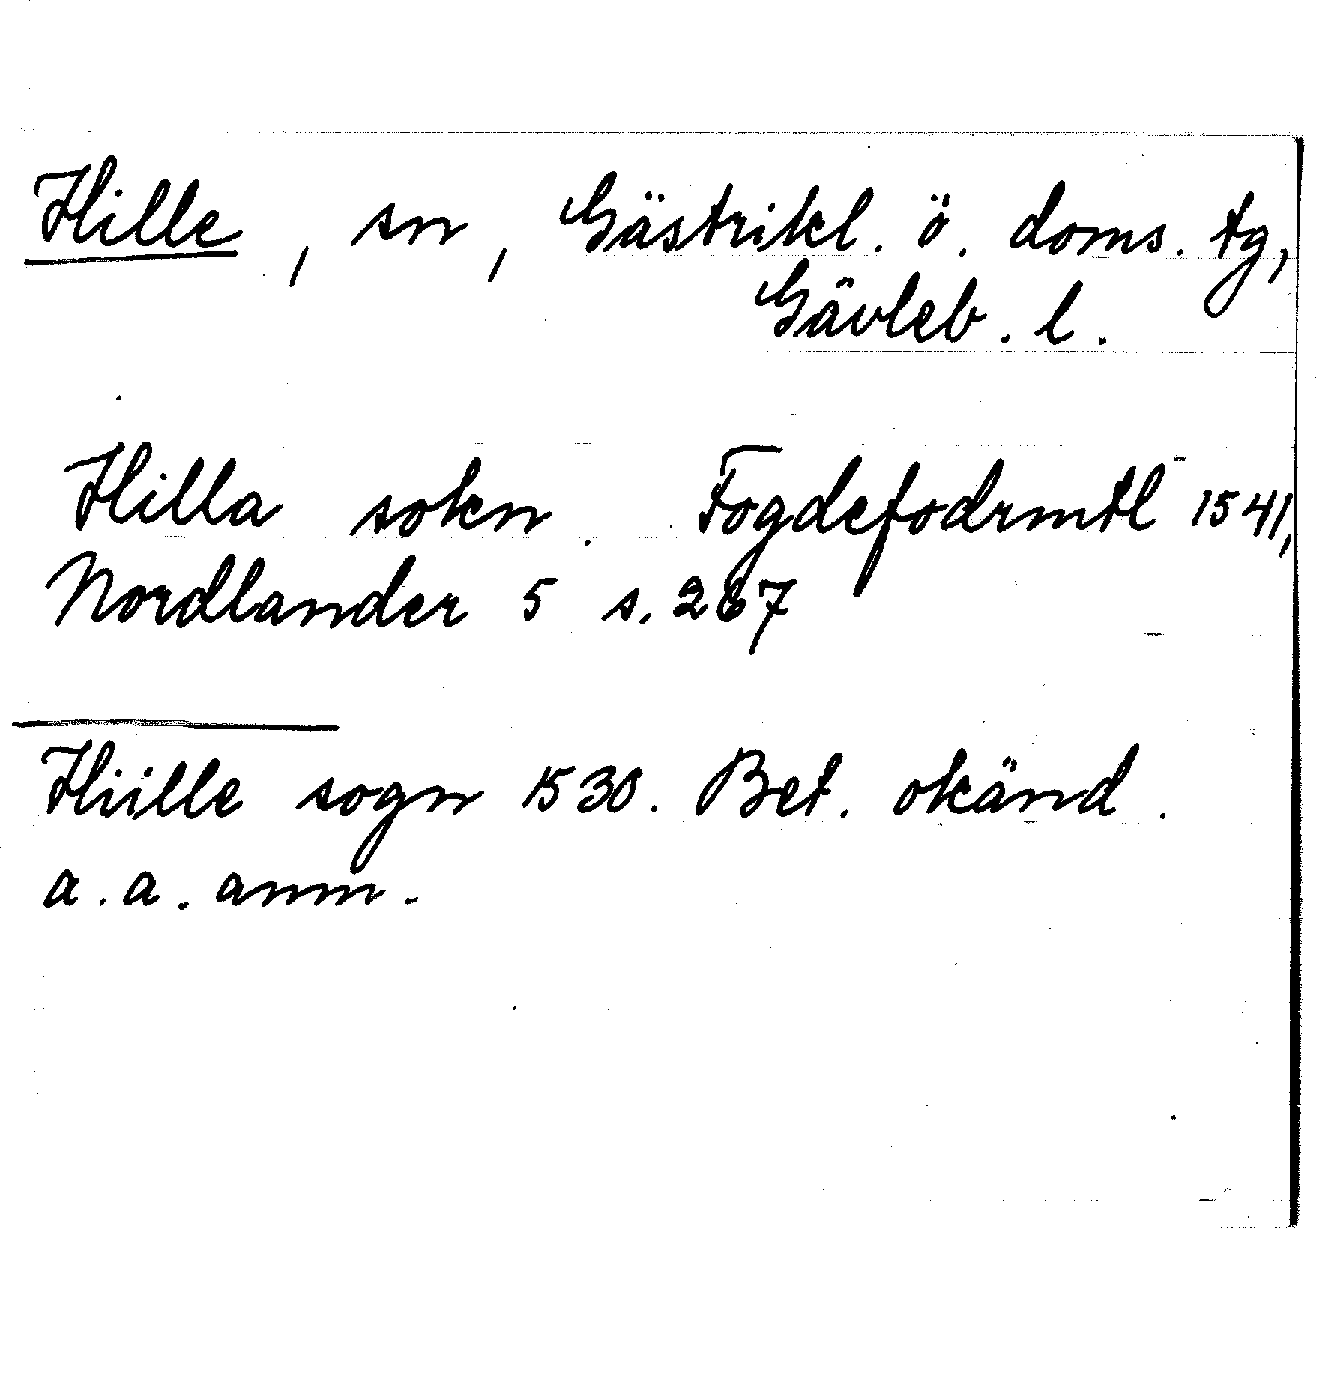 Hille, sn, Gästrikl. ö. doms. tg,
Gävleb. l.
Hilla sokn. Fogdefodrmtl 1541,
Nordlander 5 s. 267
Hiille sogn 1530. Bet. okänd.
a. a. anm.